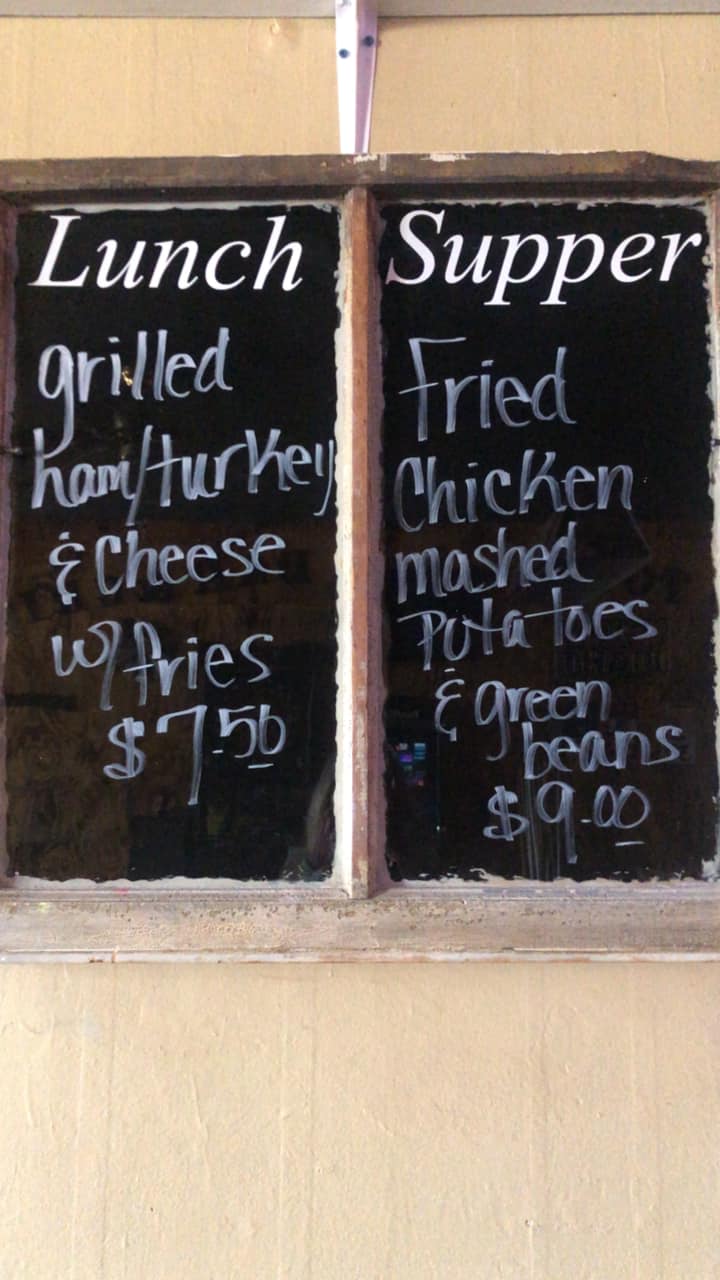 Lunch
grilled
ham/turkey
& Cheese
w/ fries
$7.50
Supper
Fried
Chicken
mashed
Potatoes
& green
beans
$9.00